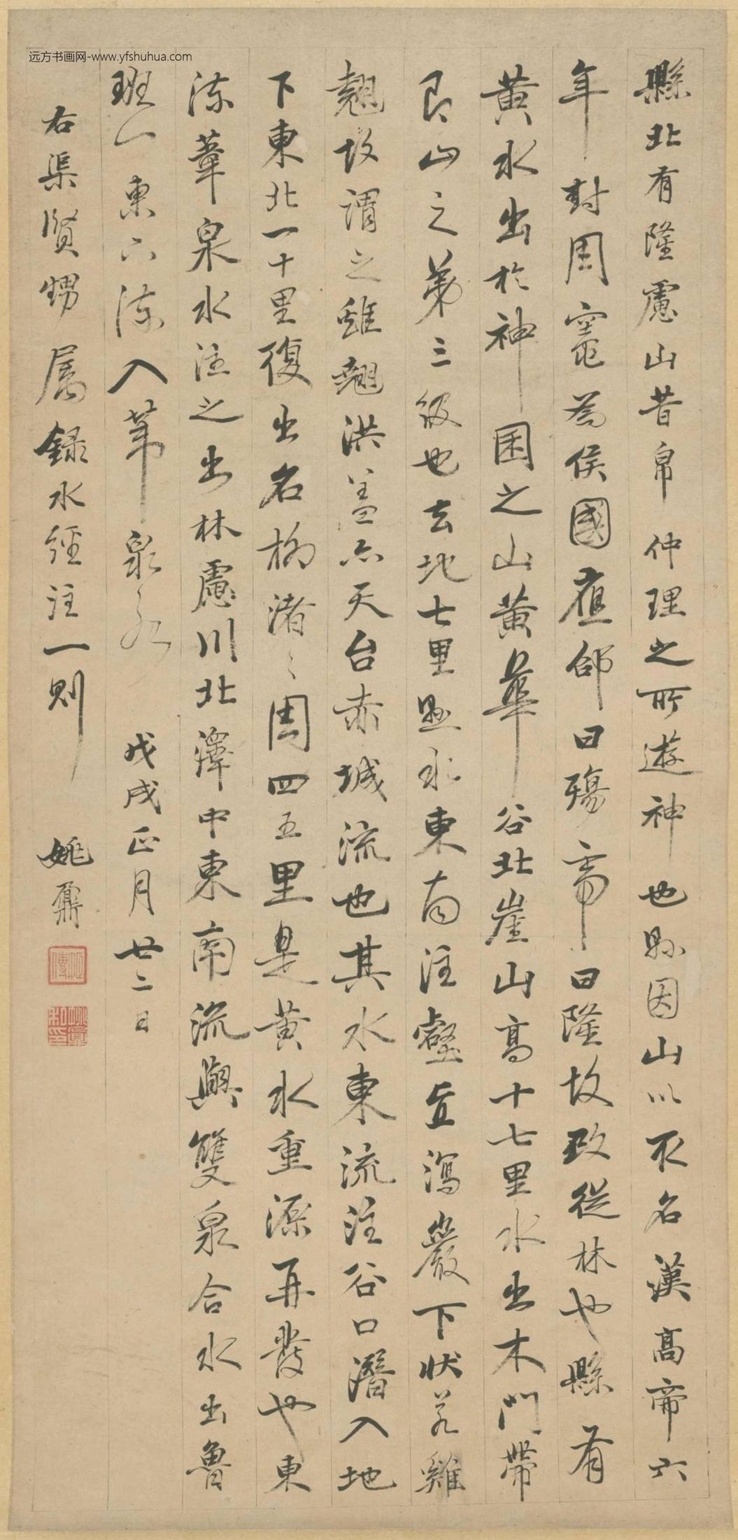 远方书画网-www.yfshuhua.com
縣北有隆慮山昔帛仲理之所遊神也縣因山以取名漢高帝六
年封周竈為侯國應邵曰殤帝曰隆故改從林也縣有
黃水出於神囷之山黃華谷北崖山高十七里水出木門帶
即山之第三級也去地七里懸水東南注壑直瀉巖下狀若雞
翹故謂之雞翹洪蓋亦天台赤城流也其水東流注谷口潛入地
下東北一十里復出名柳渚渚周四五里是黃水重源再發也東
流葦泉水注之出林慮川北澤中東南流與雙泉合水出魯
班門東下流入葦泉水 戊戌正月廿二日
右渠賢甥屬錄水經注一則 姚鼐